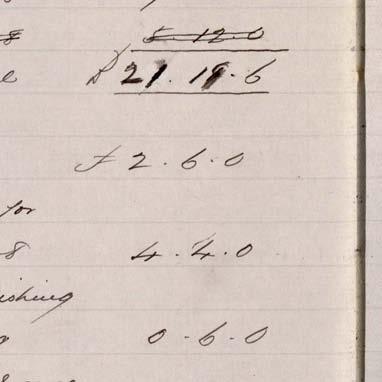 8 5.12.0
£21.19.6
£2.6.0
for
8 4.4.0
ishing
0.6.0